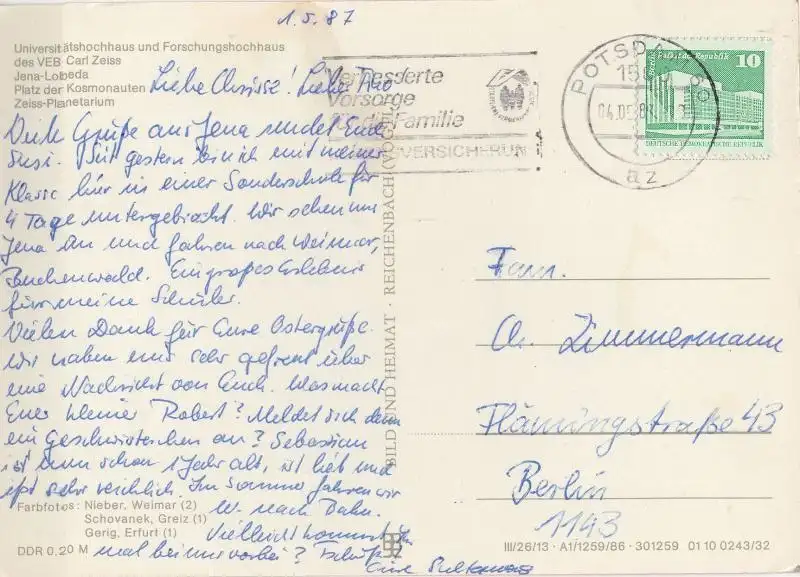 1.5.87
Universitätshochhaus und Forschungshochhaus
des VEB Carl Zeiss
Jena-Lobeda
Platz der Kosmonauten
Zeiss-Planetarium
Liebe Chrisse! Lieber Theo
Viele Grüße aus Jena sendet Euch
Susi. Seit gestern bin ich mit meiner
Klasse hier in einer Sonderschule für
4 Tage untergebracht. Wir sehen uns
Jena an und fahren nach Weimar,
Buchenwald. Ein großes Erlebnis
für meine Schüler.
Vielen Dank für Eure Ostergrüße.
Wir haben uns sehr gefreut über
eine Nachricht von Euch. Was macht
Euer kleiner Robert? Meldet sich denn
ein Geschwisterchen an? Sebastian
ist nun schon 1 Jahr alt, ist lieb und
ißt sehr reichlich. Im Sommer fahren wir
w. nach Dahn.
Vielleicht kommt Ihr
mal bei uns vorbei? Tschüß
Eure
Farbfotos: Nieber, Weimar (2)
Schovanek, Greiz (1)
Gerig, Erfurt (1)
DDR 0,20 M
BILD UND HEIMAT · REICHENBACH (VOGTL
Verbesserte
Vorsorge
Familie
VERSICHERUN
POTSDA
15
04.05.8
az
Berlin, Palast der Republik 10
DEUTSCHE DEMOKRATISCHE REPUBLIK
Fam.
Ch. Zimmermann
Flämingstraße 43
Berlin
1143
III/26/13 · A1/1259/86 · 301259 01 10 0243/32